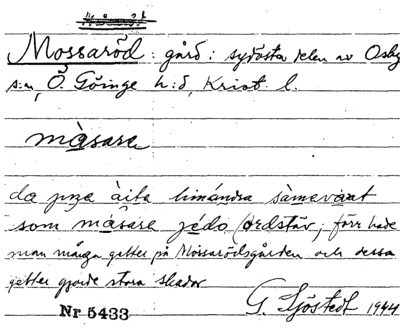 Mossaröd : gård : sydöstra delen av Osby
s:n, Ö. Göinge h:d, Krist. l.
màsare
da jưza àita himándra sàmevaat
som màsare jédo (ordstäv; förr hade
man många getter på Mossarödsgården och dessa
getter gjorde stora skador
G. Sjöstedt 1944
Nr 5433